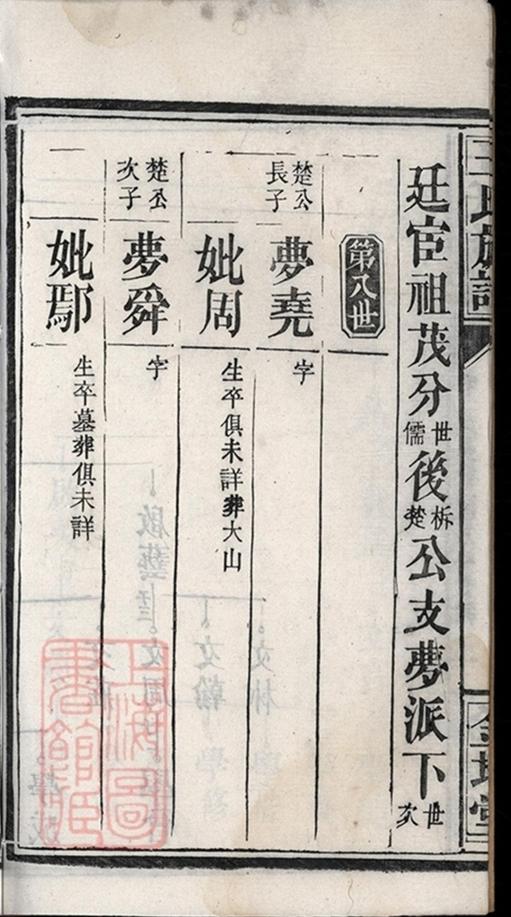 廷宦祖茂分世儒後析楚公支夢派下世次
第八世
楚公長子
夢堯
字
妣周
生卒俱未詳葬大山
楚公次子
夢舜
字
妣鄢
生卒墓葬俱未詳
上海圖書館藏